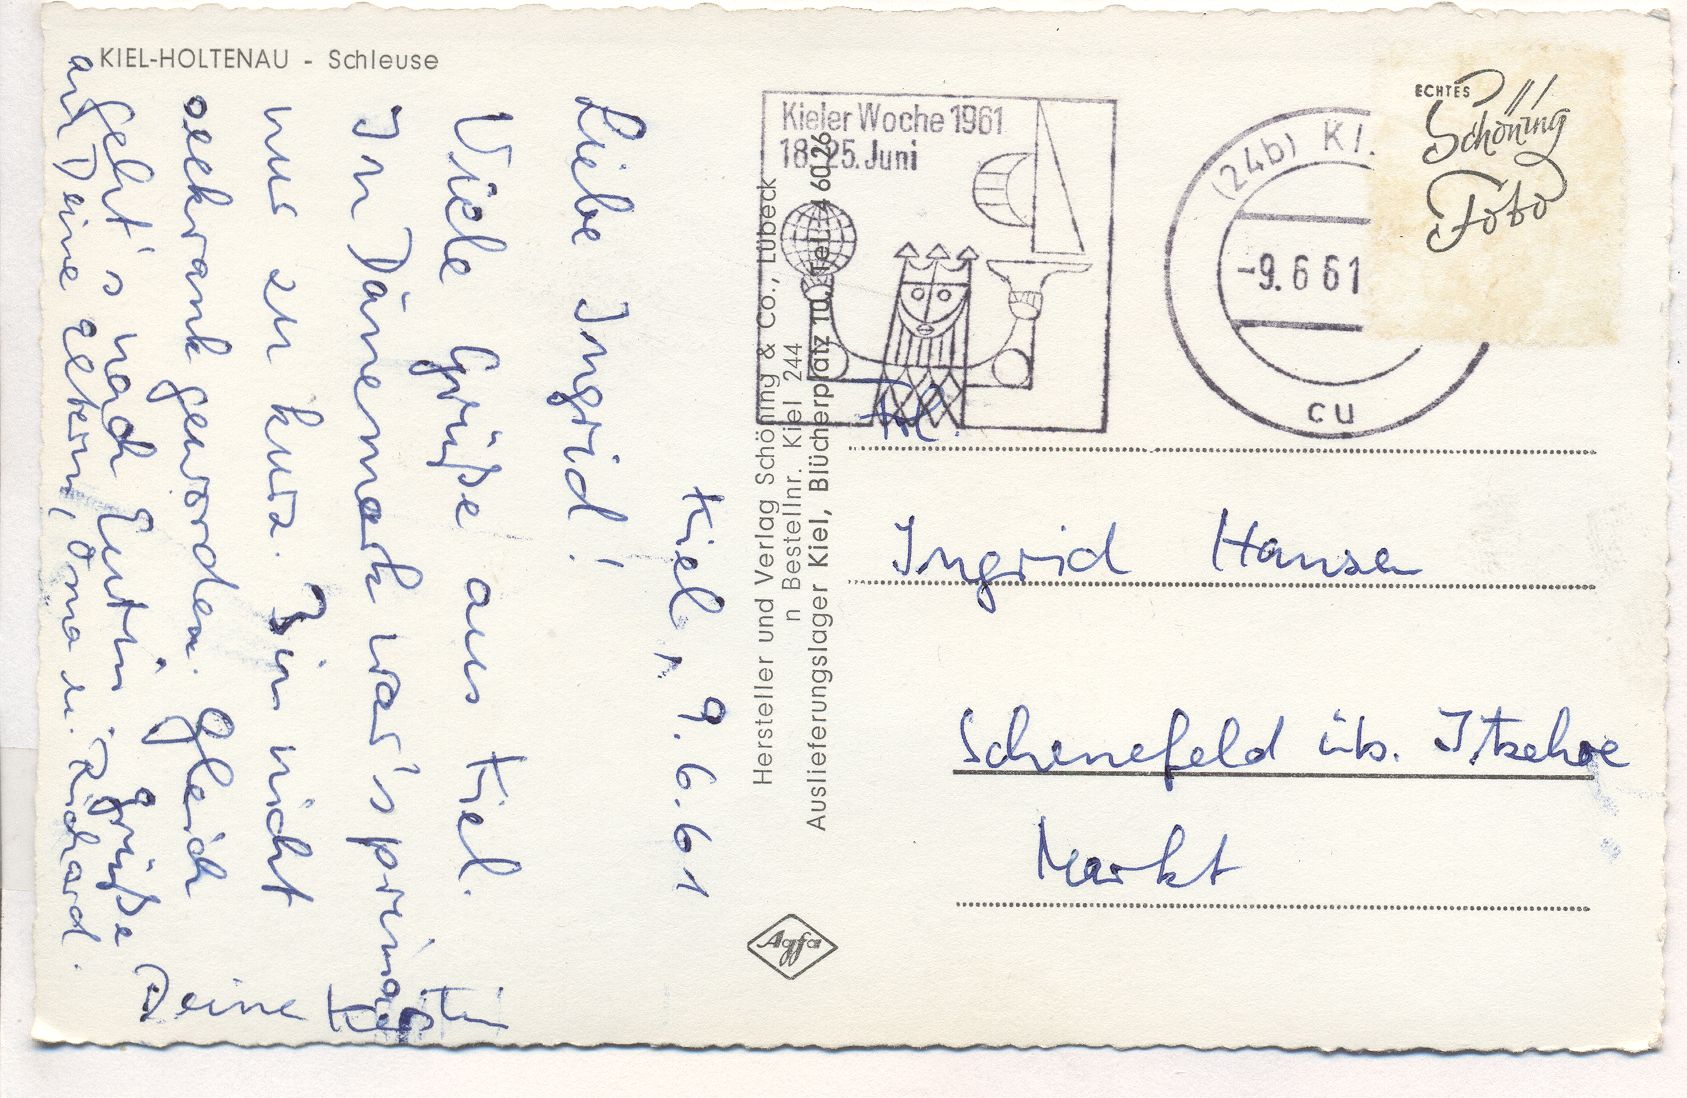 KIEL-HOLTENAU - Schleuse
Kiel, 9.6.61
Liebe Ingrid!
Viele Grüße aus Kiel.
In Dänemark war's prima
nur zu kurz. Bin nicht
seekrank geworden. Gleich
geht's nach Eutin. Grüße
an Deine Eltern, Oma u. Richard.
Deine Kerstin
Hersteller und Verlag Schöning & Co., Lübeck
n Bestellnr. Kiel 244
Auslieferungslager Kiel, Blücherplatz 10, Tel. 4 60 26
Kieler Woche 1961
18.-25. Juni
(24b) KI.
-9.6 61
cu
ECHTES
Schöning
Foto
Ingrid Hansen
Schenefeld üb. Itzehoe
Markt
Agfa